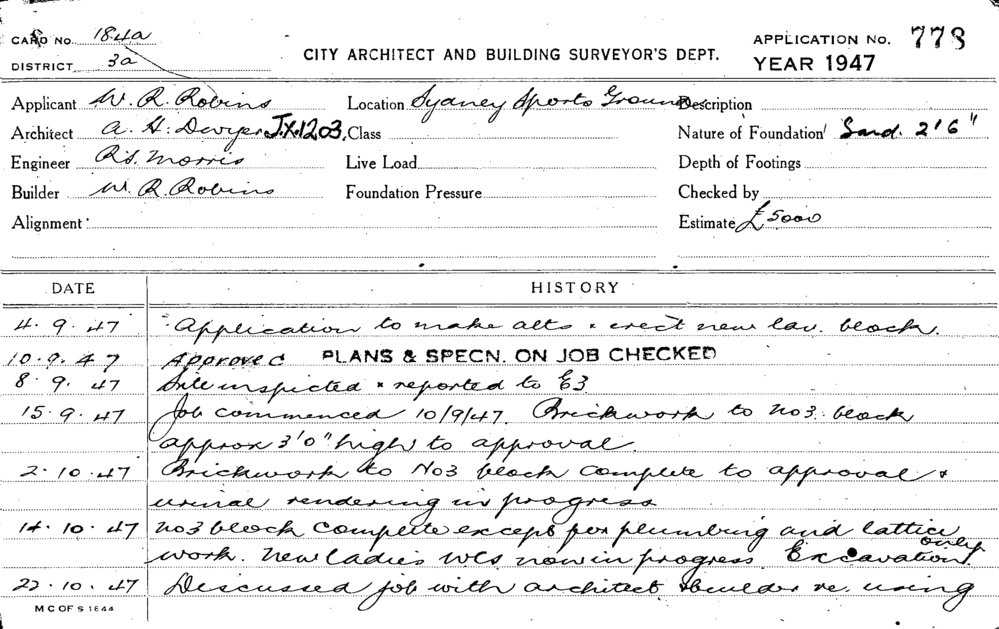 CARD No. 184a
DISTRICT 3a
CITY ARCHITECT AND BUILDING SURVEYOR'S DEPT.
APPLICATION No. 773
YEAR 1947
Applicant W. R. Robins Location Sydney Sports Ground Description
Architect A. H. Dwyer JX1203. Class Nature of Foundation Sand. 2'6"
Engineer R.S. Morris Live Load Depth of Footings
Builder W. R. Robins Foundation Pressure Checked by
Alignment Estimate £5000
DATE HISTORY
4. 9. 47 Application to make alts & erect new lav. block.
10. 9. 47 Approved PLANS & SPECN. ON JOB CHECKED
8. 9. 47 Site inspected & reported to E3
15. 9. 47 Job commenced 10/9/47. Brickwork to No3. block
approx 3'0" high to approval.
2. 10. 47 Brickwork to No3 block complete to approval &
urinal rendering in progress
14. 10. 47 No3 block complete except for plumbing and lattice
work. New ladies WCs now in progress. Excavation only.
22. 10. 47 Discussed job with architect & builder re. using
M C OF S 1844